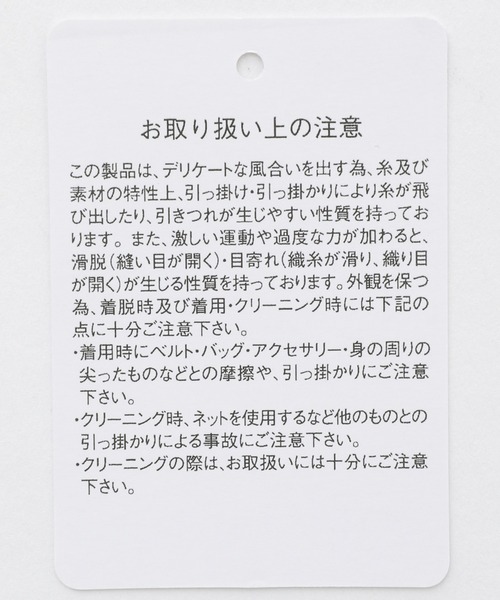 お取り扱い上の注意
この製品は、デリケートな風合いを出す為、糸及び
素材の特性上、引っ掛け・引っ掛かりにより糸が飛
び出したり、引きつれが生じやすい性質を持ってお
ります。また、激しい運動や過度な力が加わると、
滑脱(縫い目が開く)・目寄れ(織糸が滑り、織り目
が開く)が生じる性質を持っております。外観を保つ
為、着脱時及び着用・クリーニング時には下記の
点に十分ご注意下さい。
・着用時にベルト・バッグ・アクセサリー・身の周りの
尖ったものなどとの摩擦や、引っ掛かりにご注意
下さい。
・クリーニング時、ネットを使用するなど他のものとの
引っ掛かりによる事故にご注意下さい。
・クリーニングの際は、お取扱いには十分にご注意
下さい。